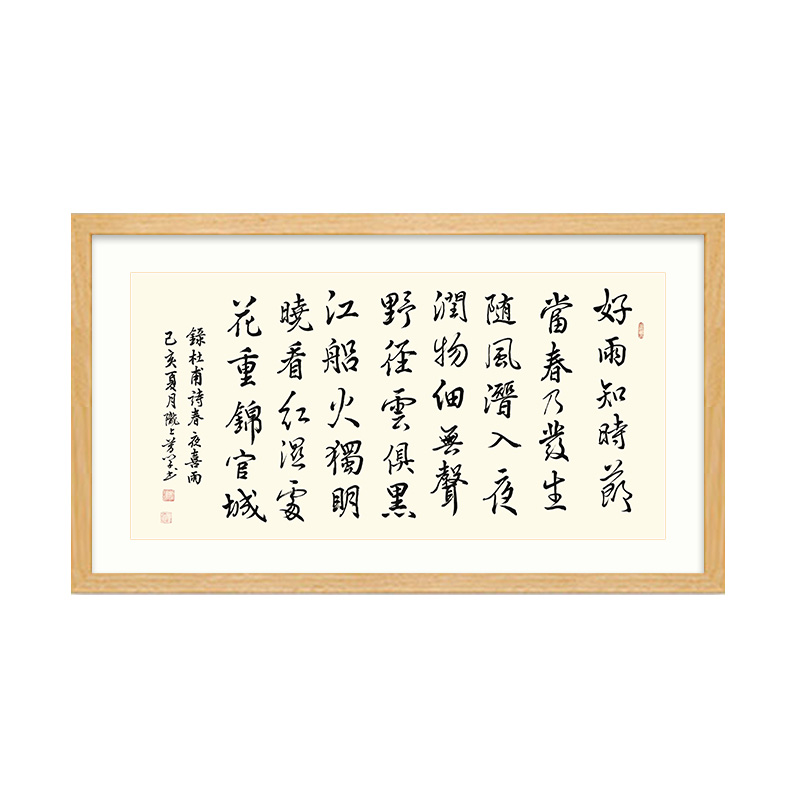 好雨知時節
當春乃發生
隨風潛入夜
潤物細無聲
野徑雲俱黑
江船火獨明
曉看紅濕處
花重錦官城
錄杜甫詩春夜喜雨
己亥夏月隴上